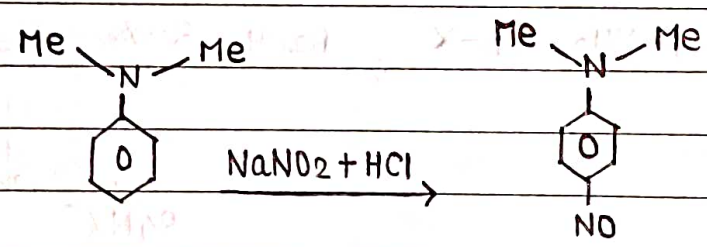 Me Me
N
NaNO2 + HCl
Me Me
N
NO